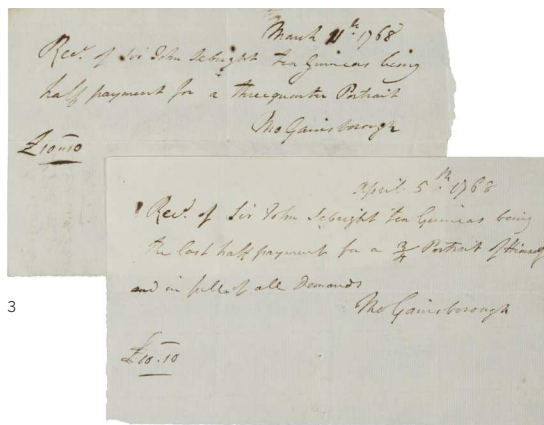 March 11th 1768
Recd. of Sir John Sebright Ten Guineas being
half payment for a threequarter Portrait
Tho Gainsborough
£10=10
April 5th 1768
Recd. of Sir John Sebright Ten Guineas being
the last half payment for a 3/4 Portrait of Himself
and in full of all Demands
Tho Gainsborough
£10.10
3